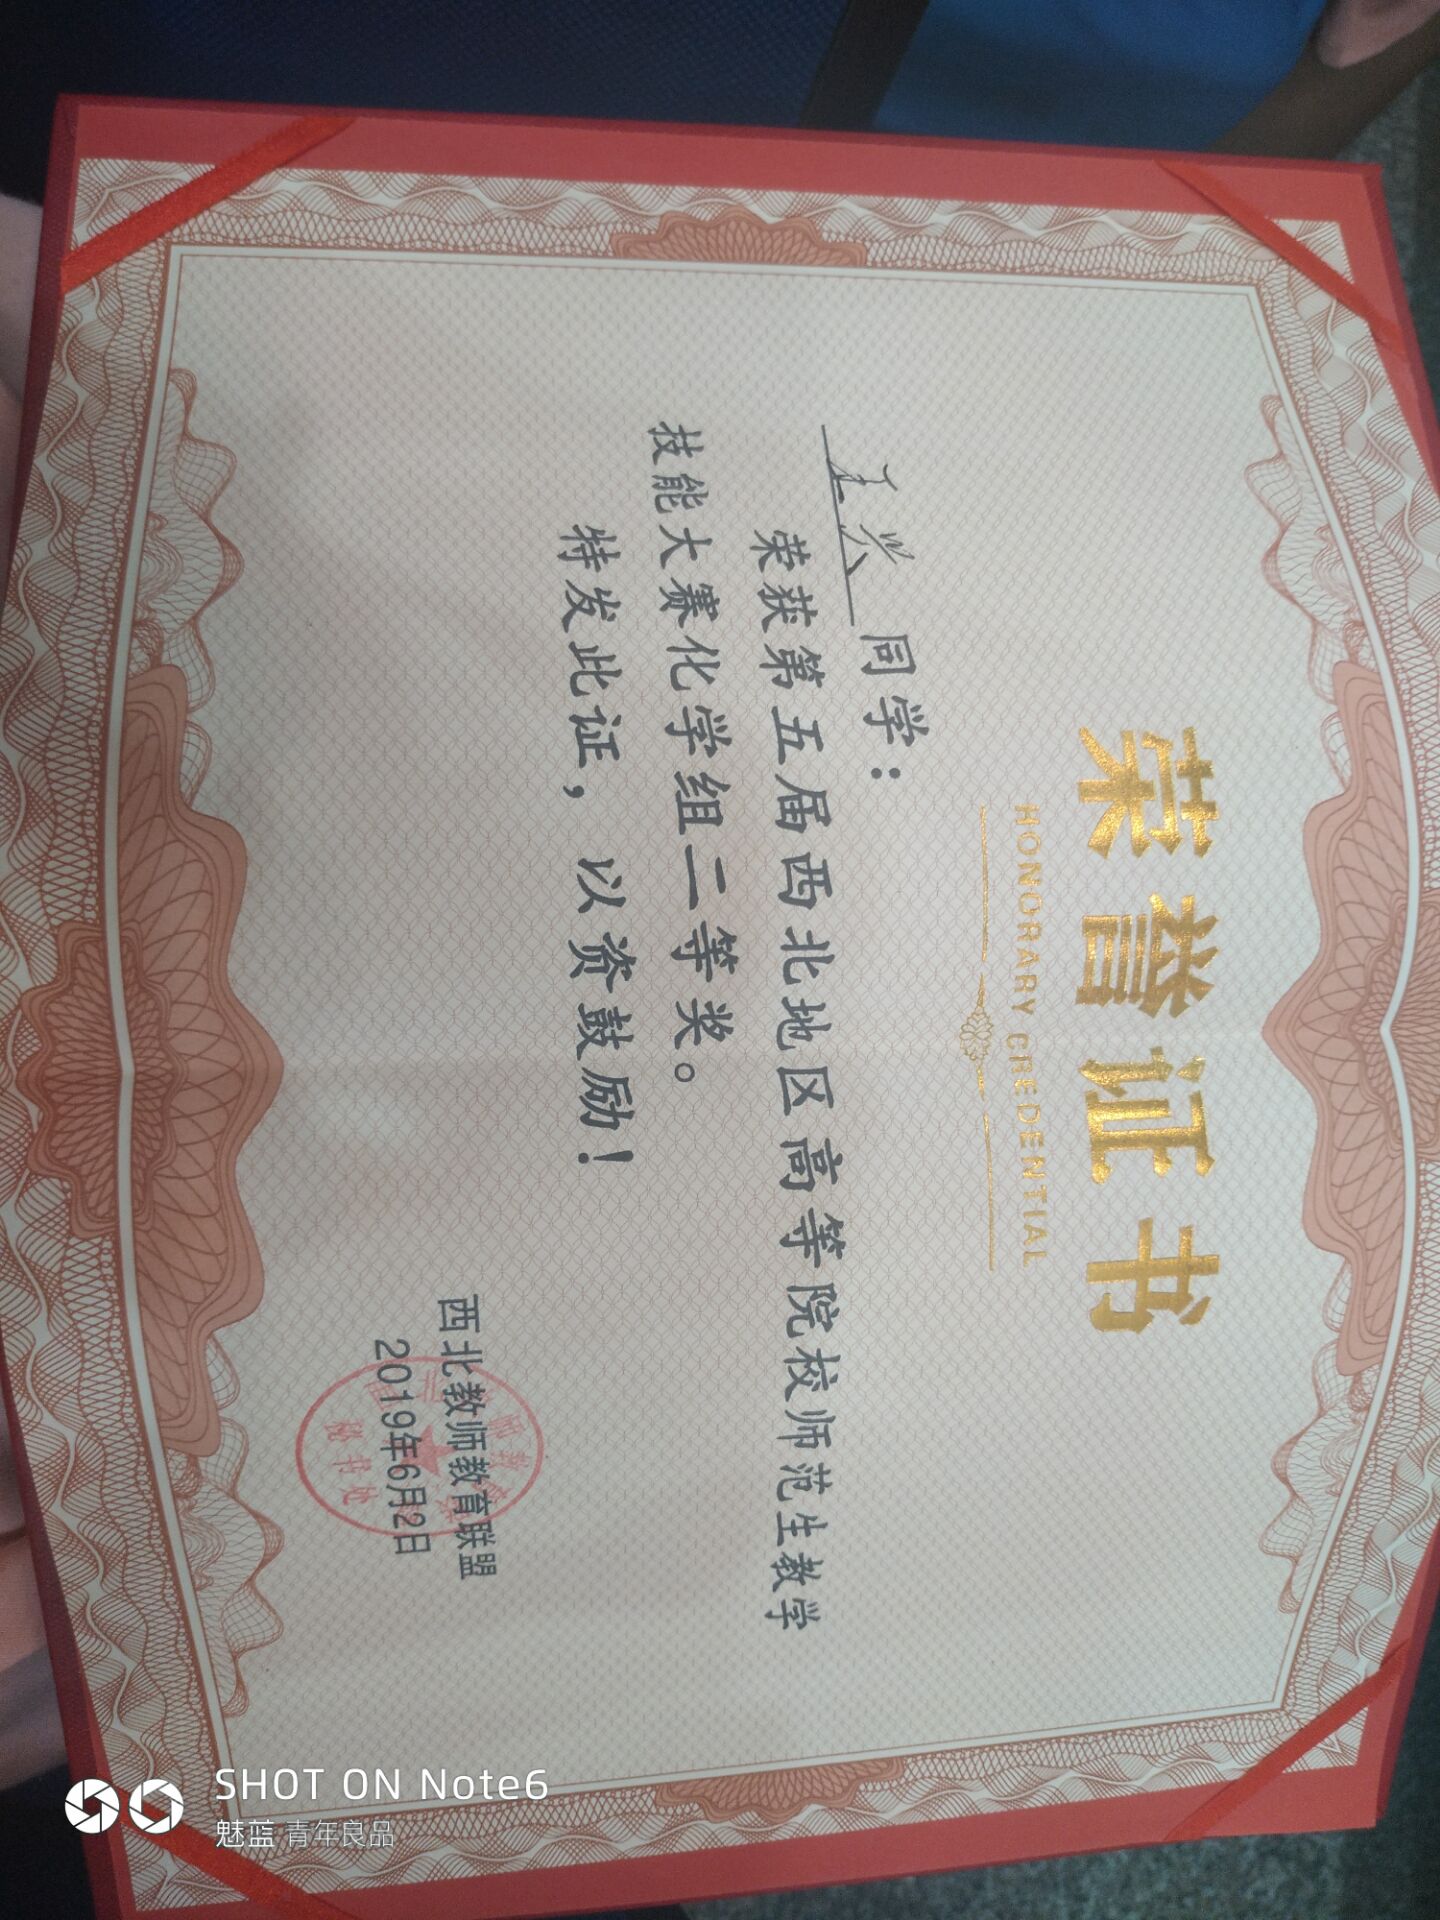 荣誉证书
HONORARY CREDENTIAL
同学：
荣获第五届西北地区高等院校师范生教学
技能大赛化学组二等奖。
特发此证，以资鼓励！
西北教师教育联盟
2019年6月2日
秘书处
SHOT ON Note6
魅蓝 青年良品